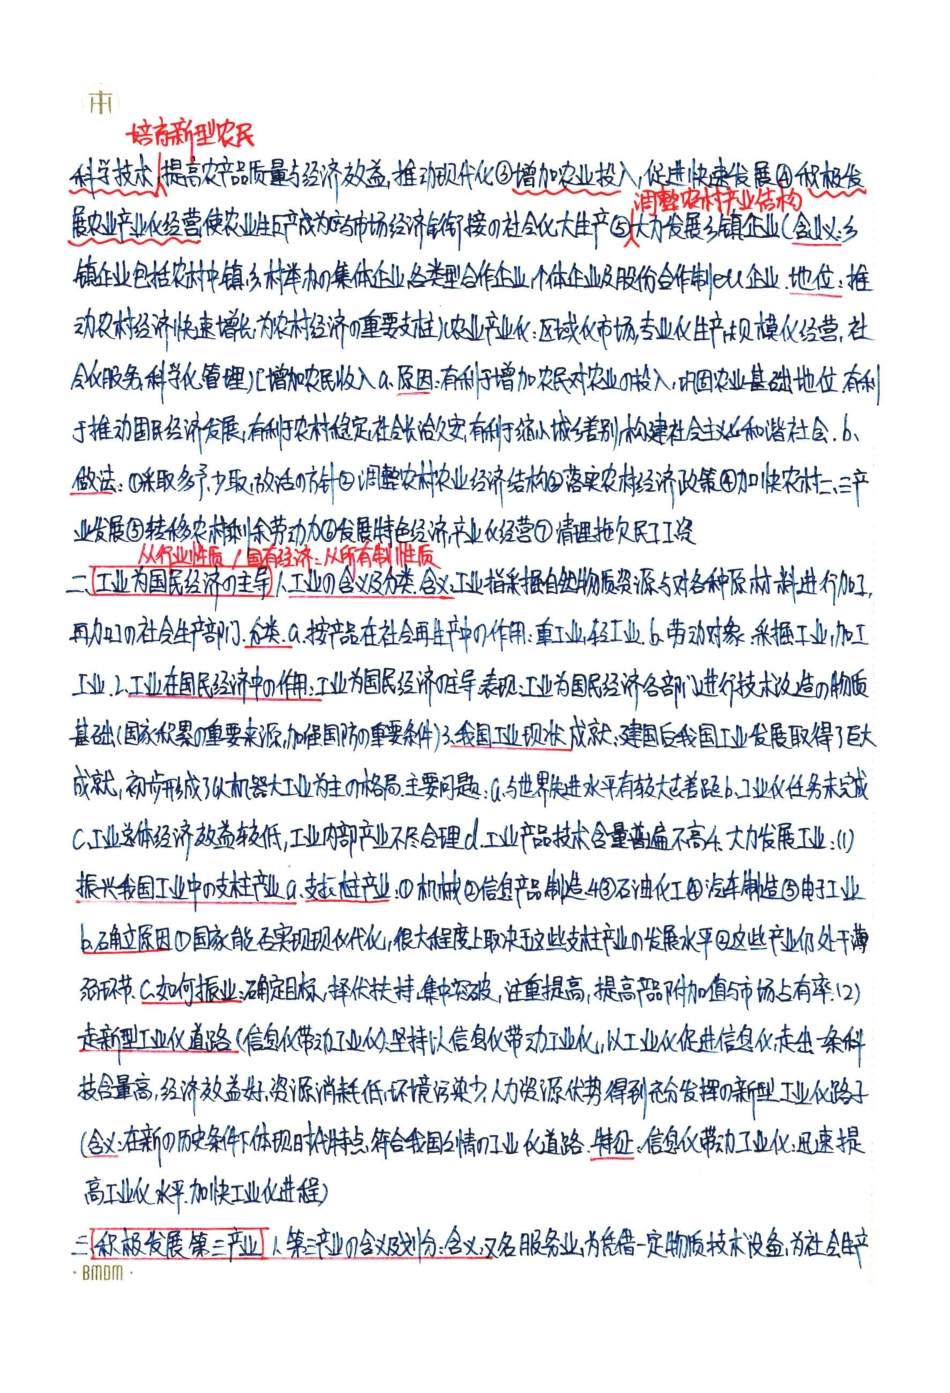 本
培育新型农民
科学技术,提高农产品质量与经济效益,推动现代化③增加农业投入,促进快速发展④积极发
调整农村产业结构
展农业产业化经营,使农业生产成为与市场经济相衔接的社会化大生产⑤大力发展乡镇企业(含义:乡
镇企业包括农村中镇,乡村举办的集体企业,各类型合作企业,个体企业及股份合作制企业.地位:推
动农村经济快速增长,为农村经济的重要支柱)(农业产业化:区域化市场,专业化生产,规模化经营,社
会化服务,科学化管理)C增加农民收入a.原因:有利于增加农民对农业的投入,巩固农业基础地位.有利
于推动国民经济发展,有利于农村稳定,社会长治久安,有利于缩小城乡差别,构建社会主义和谐社会.b.
做法:①采取多予.少取,放活的方针②调整农村农业经济结构③落实农村经济政策④加快农村二、三产
业发展⑤转移农村剩余劳动力⑥发展特色经济,产业化经营⑦清理拖欠民工工资
从行业性质/国有经济:从所有制性质
二、工业为国民经济的主导1.工业的含义及分类.含义:工业指采掘自然物质资源与对各种原材料进行加工,
再加工的社会生产部门.分类.a.按产品在社会再生产中的作用:重工业,轻工业.b.劳动对象.采掘工业,加工
工业.2.工业在国民经济中的作用:工业为国民经济的主导.表现:工业为国民经济各部门进行技术改造的物质
基础(国家积累的重要来源,加强国防的重要条件)3.我国工业现状.成就:建国后我国工业发展取得了巨大
成就,初步形成了以机器大工业为主的格局.主要问题:a.与世界先进水平有较大差距b.工业化任务未完成
C.工业总体经济效益较低,工业内部产业不尽合理d.工业产品技术含量普遍不高4.大力发展工业:(1)
振兴我国工业中的支柱产业a.支柱产业:①机械②信息产品制造③石油化工④汽车制造⑤电子工业
b.确立原因①国家能否实现现代化,很大程度上取决于这些支柱产业的发展水平②这些产业仍处于薄
弱环节.C.如何振业:确定目标,择优扶持,集中突破,注重提高,提高产品附加值与市场占有率.(2)
走新型工业化道路(信息化带动工业化).坚持以信息化带动工业化,以工业化促进信息化,走出一条科
技含量高,经济效益好,资源消耗低,环境污染少,人力资源优势得到充分发挥的新型工业化路子
(含义:在新的历史条件下体现时代特点.符合我国国情的工业化道路.特征:信息化带动工业化:迅速提
高工业化水平.加快工业化进程)
三、积极发展第三产业1.第三产业的含义及划分:含义:又名服务业,为凭借一定物质技术设备,为社会生产
·BMDM·